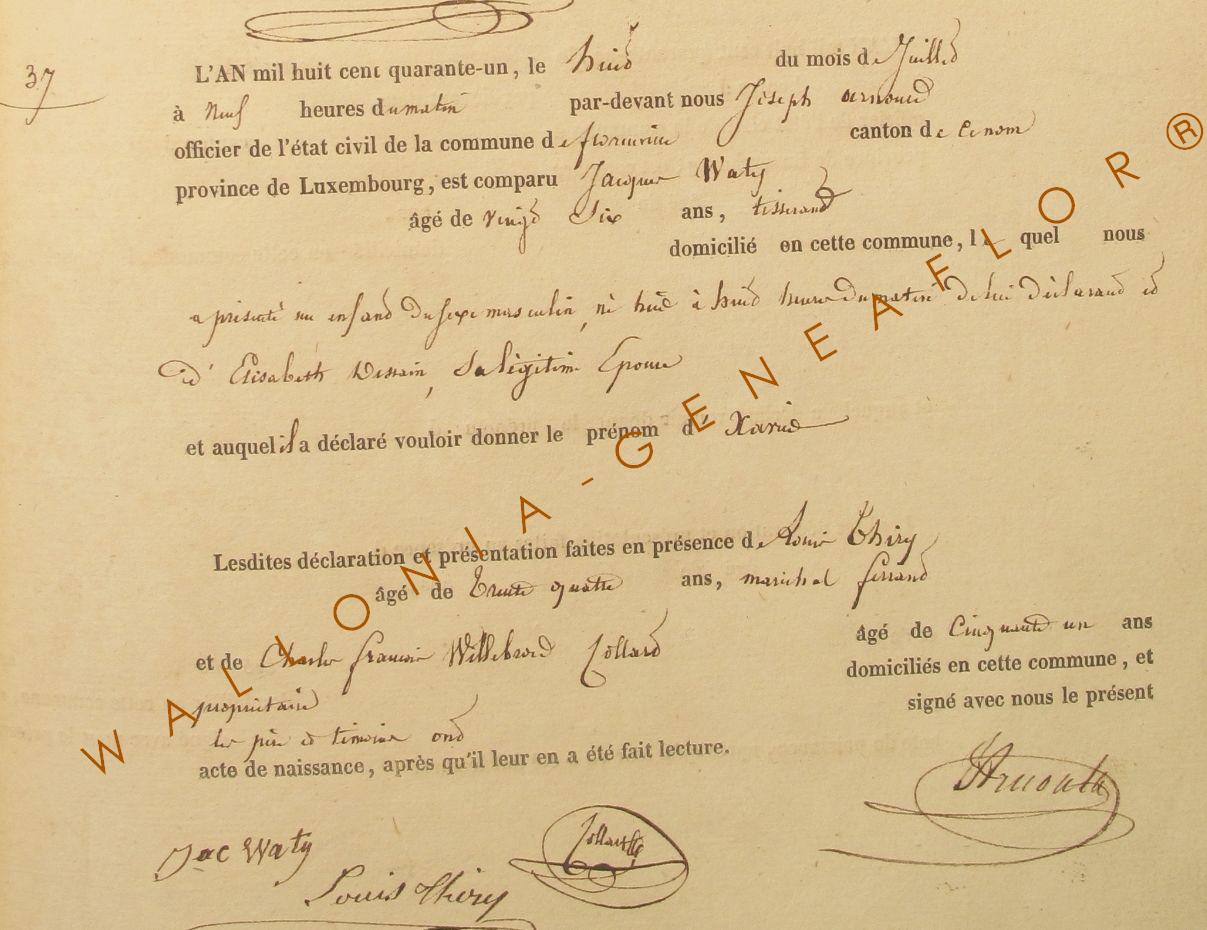 37
L'AN mil huit cent quarante-un, le huit du mois de Juillet
à neuf heures du matin par-devant nous Joseph arnould
officier de l'état civil de la commune de florenville canton de idem
province de Luxembourg, est comparu Jacques Waty
âgé de vingt six ans, tisserand
domicilié en cette commune, le quel nous
a présenté un enfant du sexe masculin, né hui à huit heures du matin de lui déclarant et
d' Elisabeth Dessain, sa légitime Epouse
et auquel il a déclaré vouloir donner le prénom d' Xavier
Lesdites déclaration et présentation faites en présence de Louis Thiry
âgé de trente quatre ans, maréchal ferrand
et de Charles françois Willebrord Collard âgé de Cinquante un ans
propriétaire domiciliés en cette commune, et
les père et témoins ont signé avec nous le présent
acte de naissance, après qu'il leur en a été fait lecture.
Jac Waty
Louis Thiry
Collard
WALLONIA-GENEAFLOR®